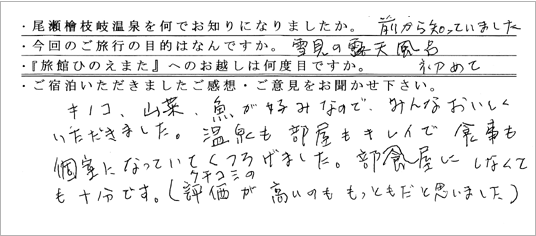 ・尾瀬檜枝岐温泉を何でお知りになりましたか。 前から知っていました
・今回のご旅行の目的はなんですか。 雪見の露天風呂
・『旅館ひのえまた』へのお越しは何度目ですか。 初めて
・ご宿泊いただきましたご感想・ご意見をお聞かせ下さい。
キノコ、山菜、魚が好みなので、みんなおいしく
いただきました。温泉も部屋もキレイで食事も
個室になっていてくつろげました。部食屋にしなくて
も十分です。(クチコミの評価が高いのももっともだと思いました)